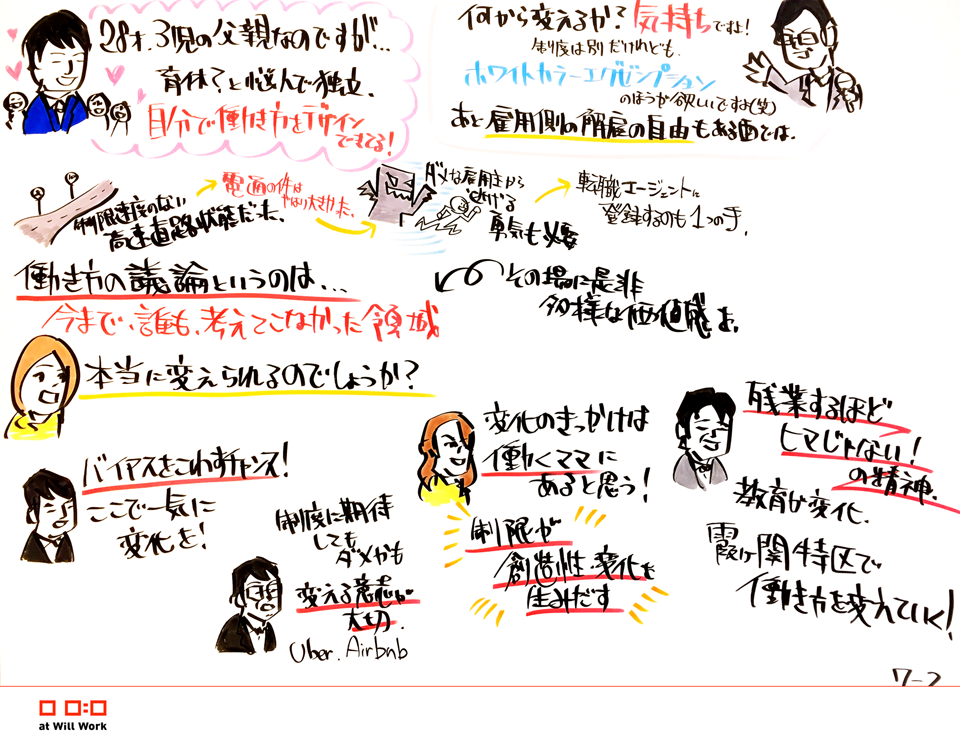 28才、3児の父親なのですが…
育休?と悩んで独立、
自分で働き方をデザイン
できてる!
何から変えるか?気持ちですよ!
制度は別だけれども、
ホワイトカラーエグゼンプション
のほうが欲しいですよ(笑)
あと雇用側の解雇の自由もある面では。
制限速度のない
高速道路状態だった、
電通の件は
やはり大きかった、
ダメな雇用主から
逃げる
勇気も必要
転職エージェントに
登録するのも1つの手、
働き方の議論というのは…
今まで、誰も、考えてこなかった領域
その場に是非
多様な価値感を、
本当に変えられるのでしょうか?
バイアスをこわすチャンス!
ここで一気に
変化を!
制度に期待
しても
ダメかも
変える意志が
大切、
Uber、Airbnb
変化のきっかけは
働くママに
あると思う!
制限が
創造性・変化を
生みだす
残業するほど
ヒマじゃない!
の精神、
教育が変化、
霞ヶ関特区で
働き方を変えていく!
7-2
at Will Work